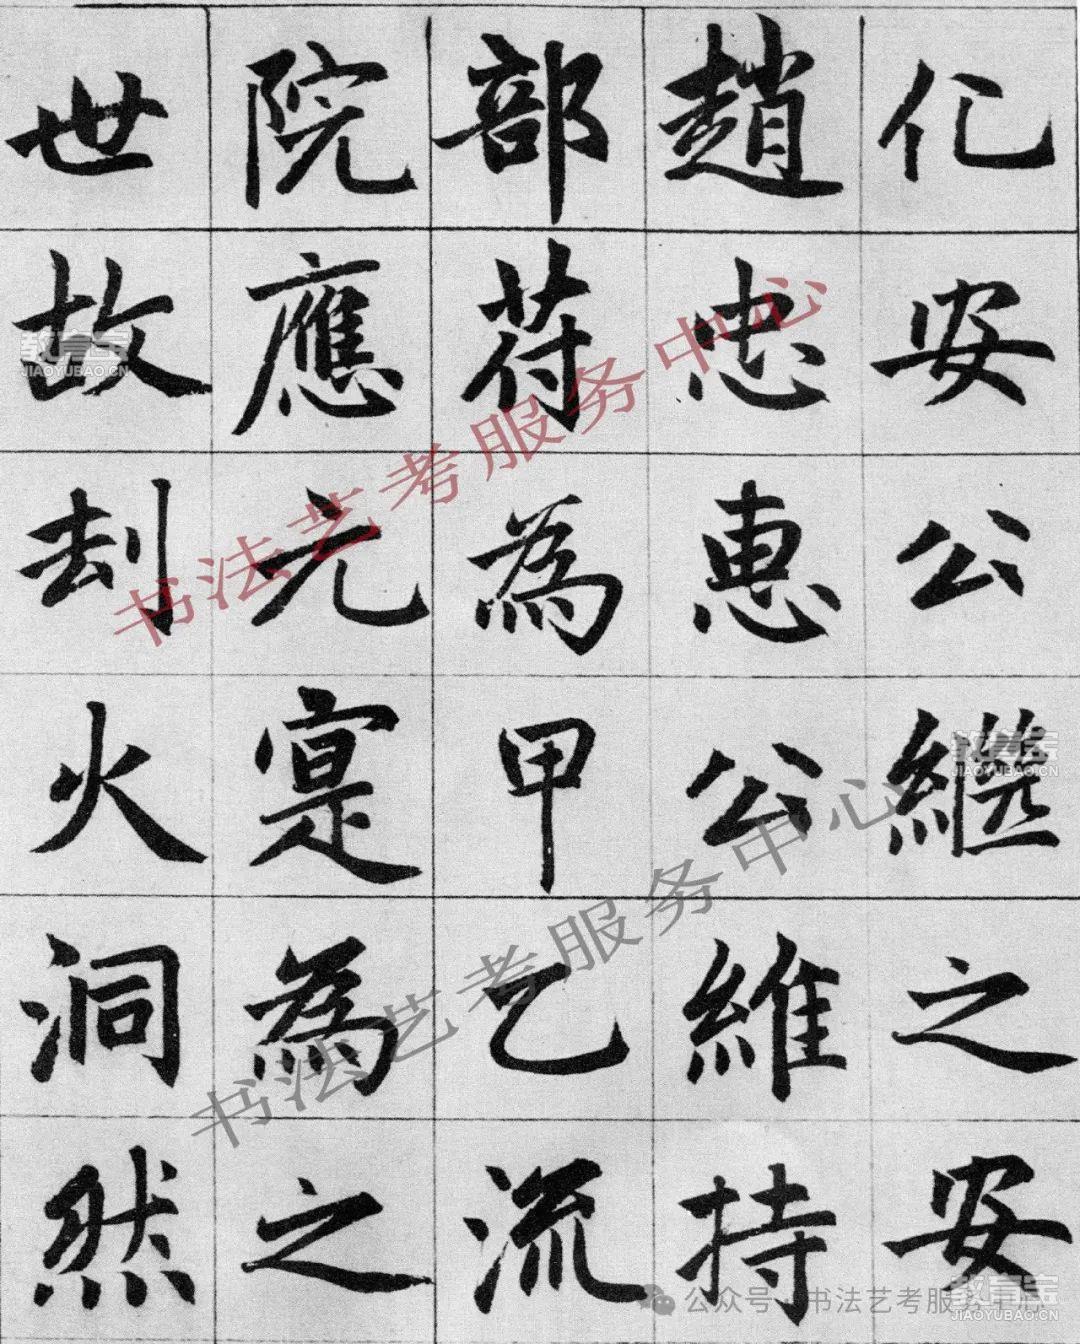 化安公繼之安
趙忠惠公維持
部符為甲乙流
院應元寔為之
世故刦火洞然
书法艺考服务中心
书法艺考服务中心
教育宝
JIAOYUBAO.CN
教育宝
JIAOYUBAO.CN
教育宝
JIAOYUBAO.CN
公众号 · 书法艺考服务中心